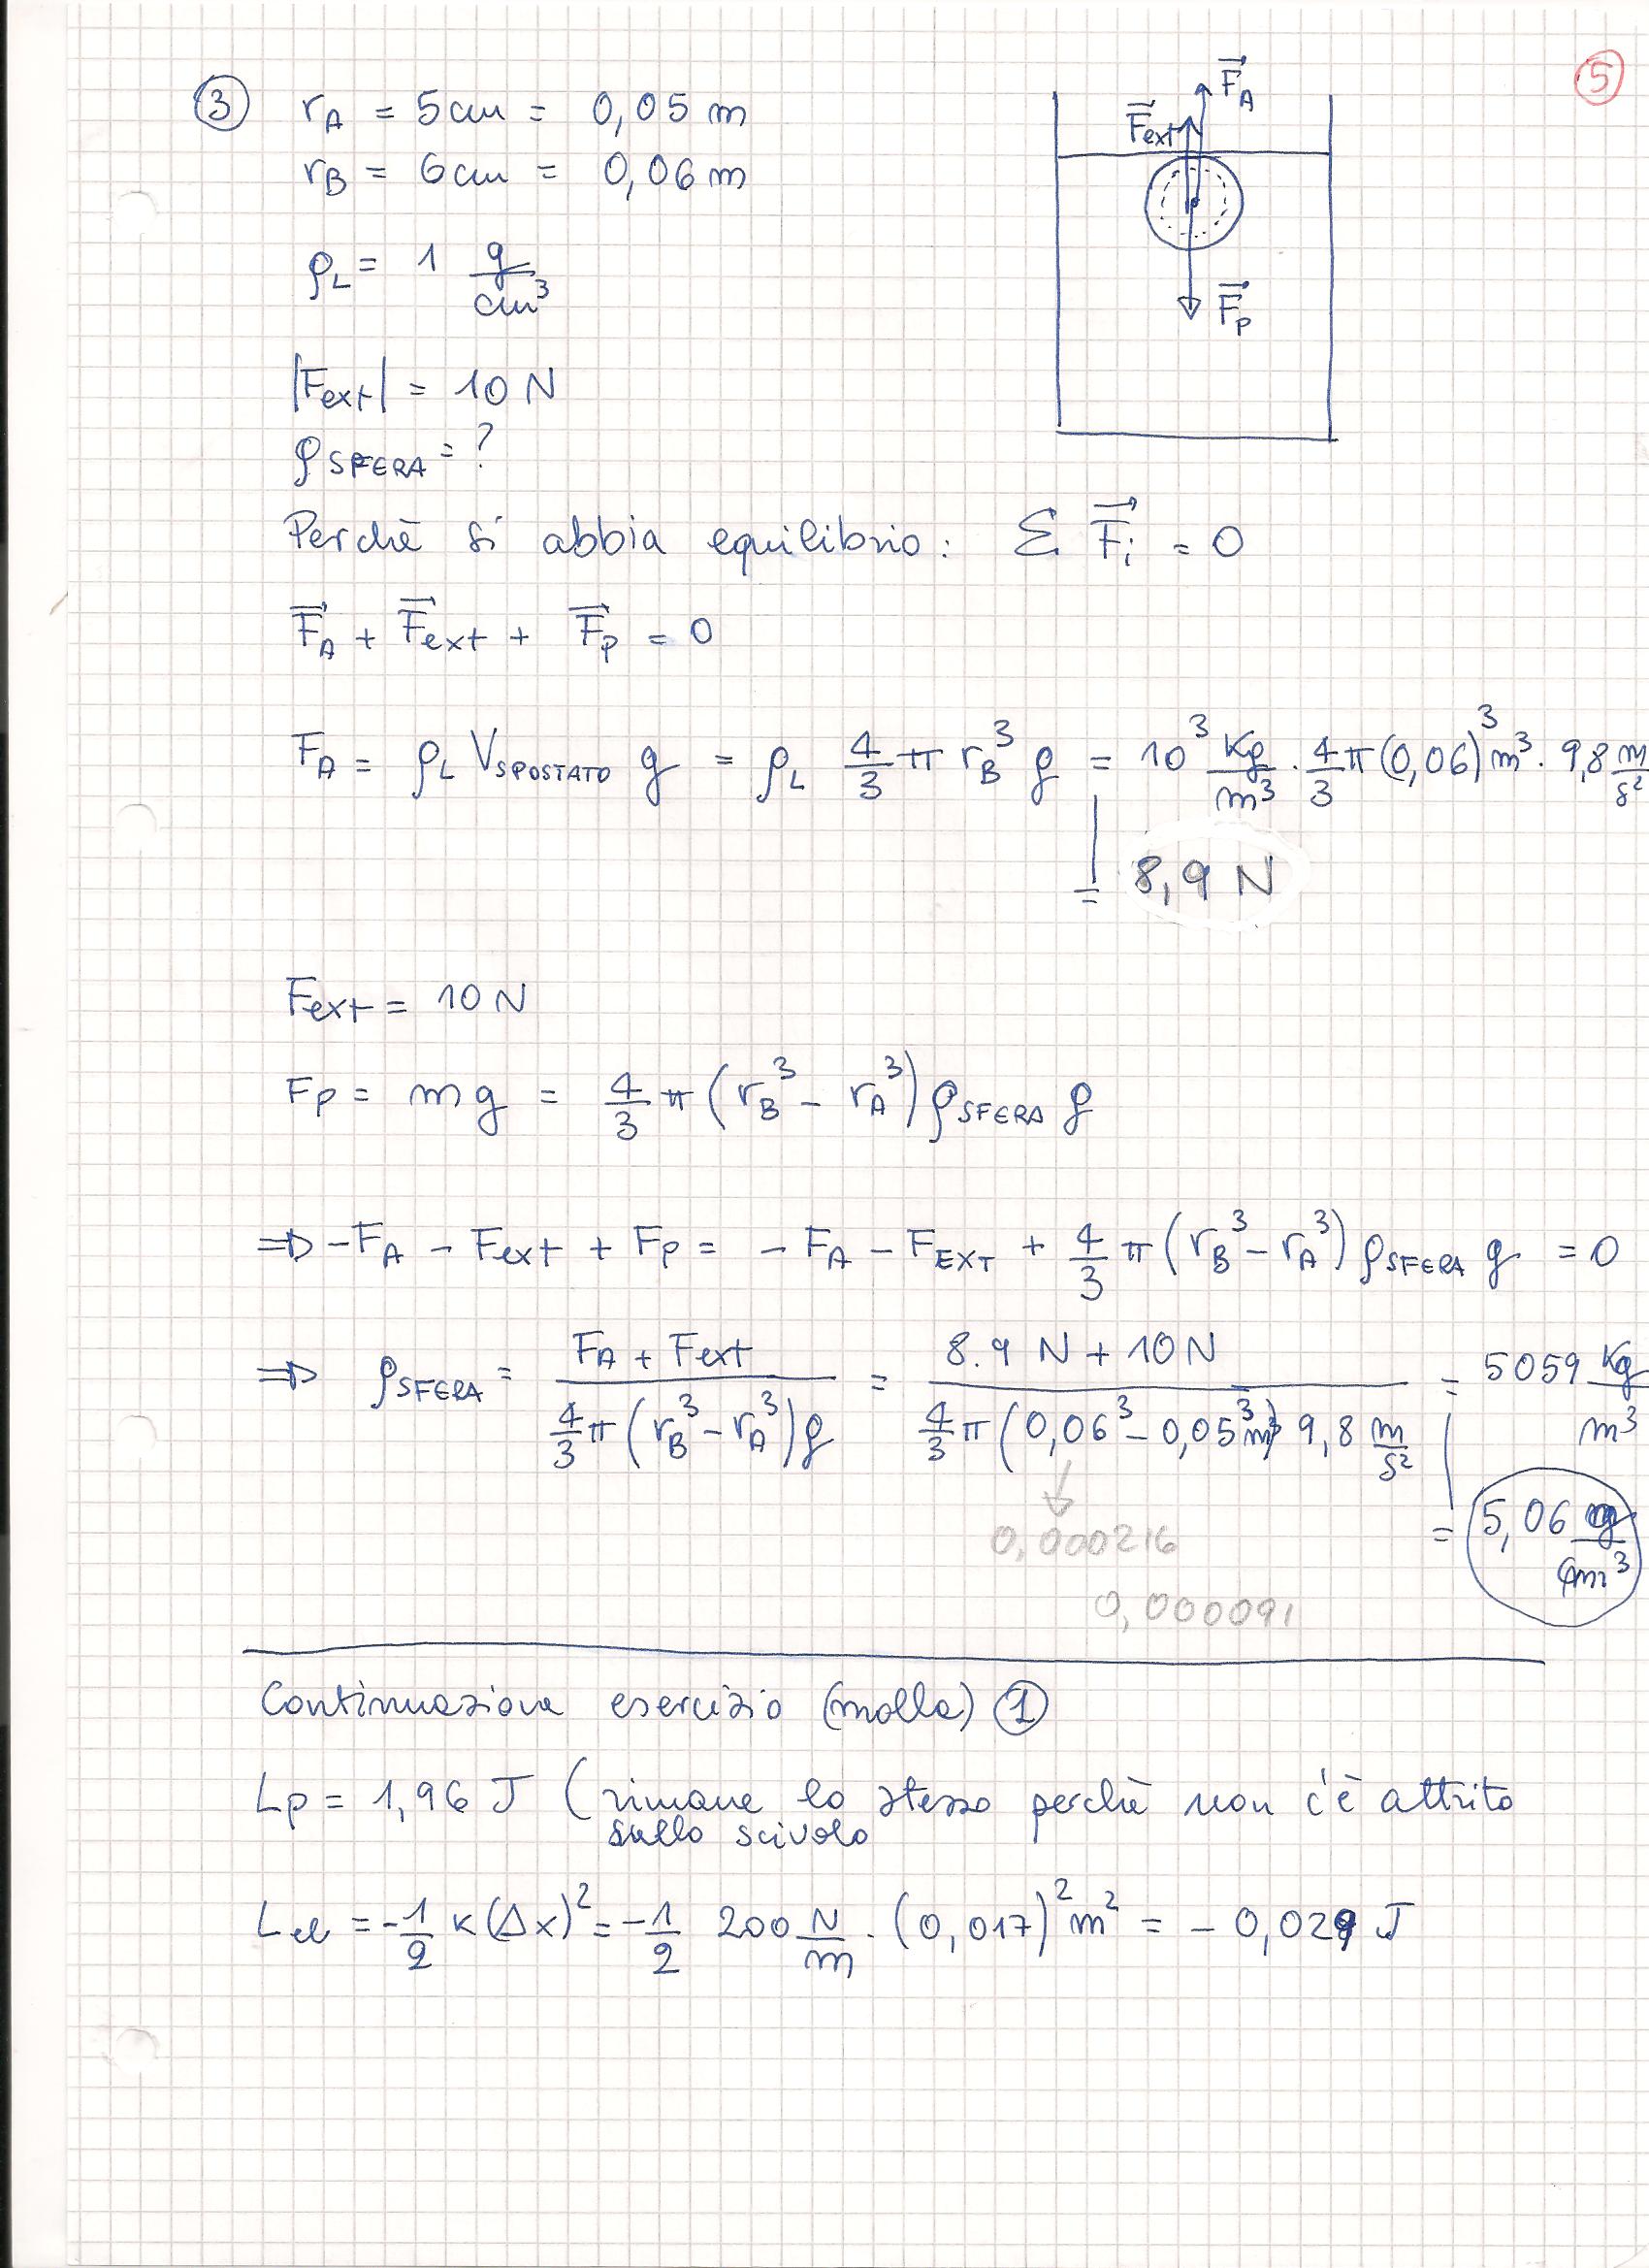 ⑤
③ rA = 5cm = 0,05 m
rB = 6cm = 0,06 m
F⃗A
F⃗ext
F⃗p
ρL = 1 g/cm³
|Fext| = 10 N
ρSFERA = ?
Perchè si abbia equilibrio: Σ F⃗i = 0
F⃗A + F⃗ext + F⃗p = 0
FA = ρL VSPOSTATO g = ρL 4/3 π rB³ g = 10³ Kg/m³ · 4/3 π (0,06)³ m³ · 9,8 m/s²
= 8,9 N
Fext = 10 N
Fp = mg = 4/3 π (rB³ - rA³) ρSFERA g
⇒ -FA - Fext + Fp = - FA - FEXT + 4/3 π (rB³ - rA³) ρSFERA g = 0
⇒ ρSFERA = (FA + Fext) / (4/3 π (rB³ - rA³) g) = (8.9 N + 10 N) / (4/3 π (0,06³ - 0,05³ m³) 9,8 m/s²) = 5059 Kg/m³
= 5,06 g/cm³
0,000216
0,000091
Continuazione esercizio (molla) ①
Lp = 1,96 J (rimane lo stesso perchè non c'è attrito
sullo scivolo
Lel = -1/2 K(Δx)² = -1/2 200 N/m · (0,017)² m² = - 0,029 J